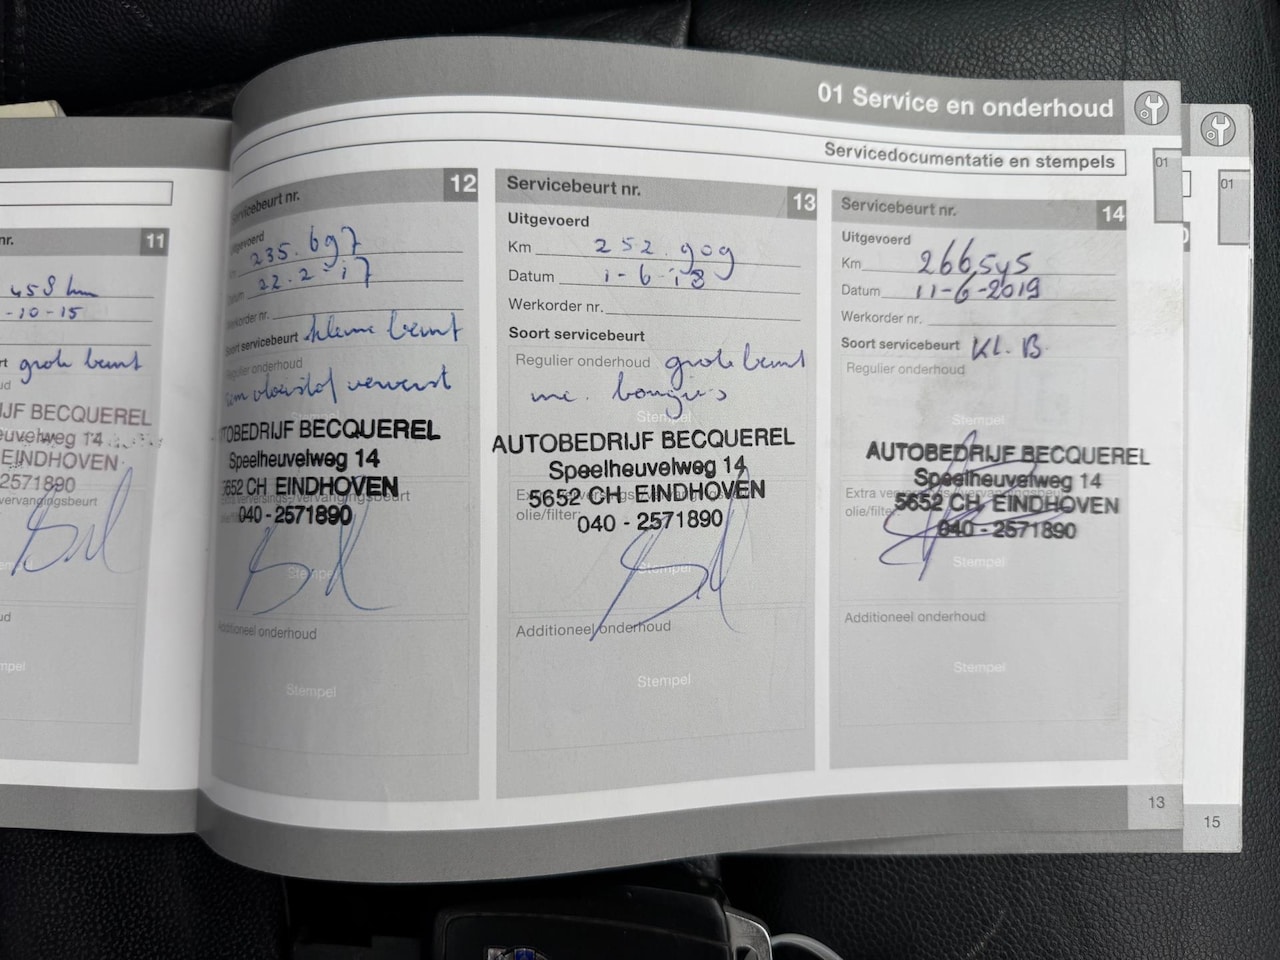 01 Service en onderhoud
Servicedocumentatie en stempels
01
01
nr.
11
458 km
-10-15
grote beurt
BECQUEREL
14
EINDHOVEN
2571890
vervangingsbeurt
Servicebeurt nr.
12
Uitgevoerd
235.697
Datum
22.2-17
Werkorder nr.
Soort servicebeurt kleine beurt
Regulier onderhoud
vloeistof ververst
Stempel
AUTOBEDRIJF BECQUEREL
Speelheuvelweg 14
5652 CH EINDHOVEN
verversings-/vervangingsbeurt
olie/filter:
040 - 2571890
Stempel
Additioneel onderhoud
Stempel
Servicebeurt nr.
13
Uitgevoerd
Km 252.909
Datum 1-6-18
Werkorder nr.
Soort servicebeurt
Regulier onderhoud grote beurt
bougies
Stempel
AUTOBEDRIJF BECQUEREL
Speelheuvelweg 14
5652 CH EINDHOVEN
olie/filter:
040 - 2571890
Stempel
Additioneel onderhoud
Stempel
Servicebeurt nr.
14
Uitgevoerd
Km 266545
Datum 11-6-2019
Werkorder nr.
Soort servicebeurt KL. B.
Regulier onderhoud
Stempel
AUTOBEDRIJF BECQUEREL
Speelheuvelweg 14
Extra
5652 CH EINDHOVEN
olie/filter:
040 - 2571890
Stempel
Additioneel onderhoud
Stempel
13
15